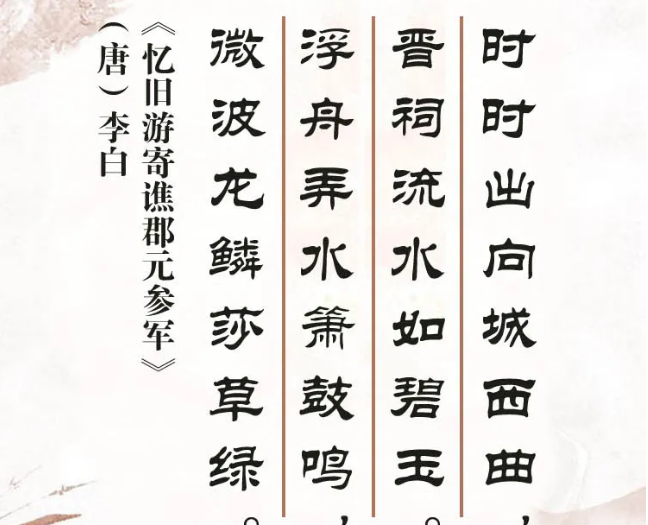 时时出向城西曲，
晋祠流水如碧玉。
浮舟弄水箫鼓鸣，
微波龙鳞莎草绿。
《忆旧游寄谯郡元参军》
（唐）李白